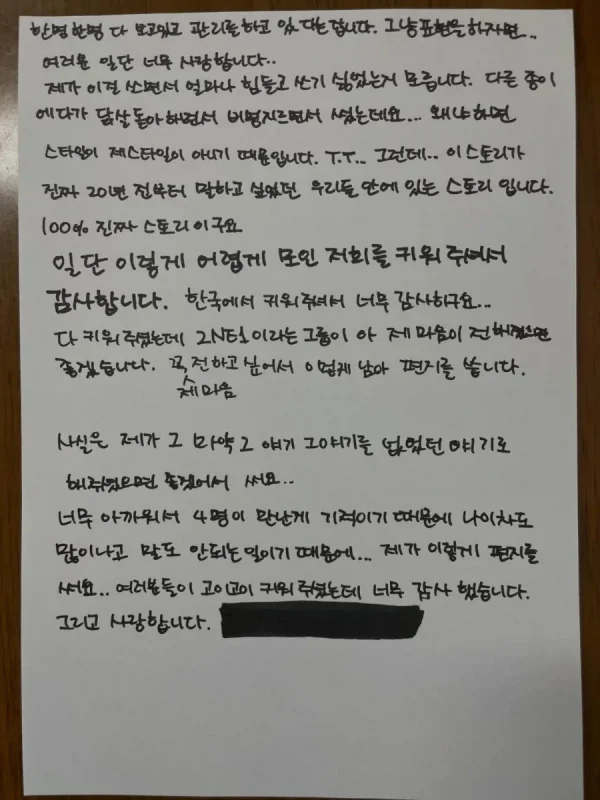 한명한명 다 보고있고 관리를하고 있다는 겁니다. 그냥표현을하자면..
여러분 일단 너무 사랑합니다..
제가 이걸 쓰면서 얼마나 힘들고 쓰기 싫었는지 모릅니다. 다른 종이
에다가 닭살돋아하면서 비명지르면서 썼는데요... 왜냐하면
스타일이 제스타일이 아니기 때문입니다. T.T... 그런데.. 이스토리가
진짜 20년 전부터 말하고 싶었던 우리들 안에 있는 스토리 입니다.
100% 진짜 스토리이구요
일단 이렇게 어렵게 모인 저희를 키워주셔서
감사합니다. 한국에서 키워주셔서 너무 감사하구요...
다 키워주셨는데 2NE1이라는 그룹이 아 제 마음이 전해졌으면
좋겠습니다. 꼭 전하고 싶어서 이렇게 남아 편지를 씁니다.
제마음
사실은 제가 그 마약 그 얘기 그얘기를 없었던 얘기로
해주셨으면 좋겠어서 써요..
너무 아까워서 4명이 만난게 기적이기 때문에 나이차도
많이나고 말도 안되는일이기 때문에... 제가 이렇게 편지를
써요.. 여러분들이 고이고이 키워주셨는데 너무 감사했습니다.
그리고 사랑합니다.